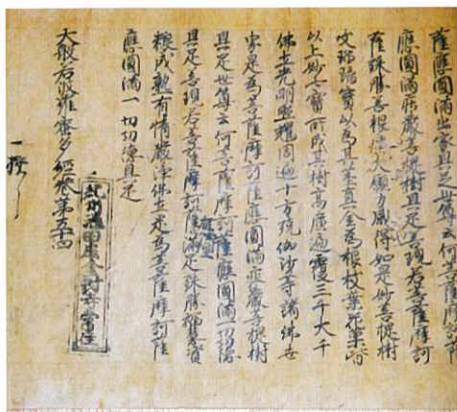 薩應圓滿出家具足世尊云何菩薩摩訶薩
應圓滿莊嚴菩提樹具足善現若菩薩摩訶
薩殊勝善根廣大願力感得如是妙菩提樹
吠瑠璃寶以為其莖真金為根枝葉花果皆
以上妙七寶所成其樹高廣遍覆三千大千
佛土光明照耀周遍十方殑伽沙等諸佛世
界是為菩薩摩訶薩應圓滿莊嚴菩提樹
具足世尊云何菩薩摩訶薩應圓滿一切功德
具足善現若菩薩摩訶薩滿足殊勝福慧資
糧成熟有情嚴淨佛土是為菩薩摩訶薩
應圓滿一切功德具足
紀州 常住
大般若波羅蜜多經卷第五十四
一挍了